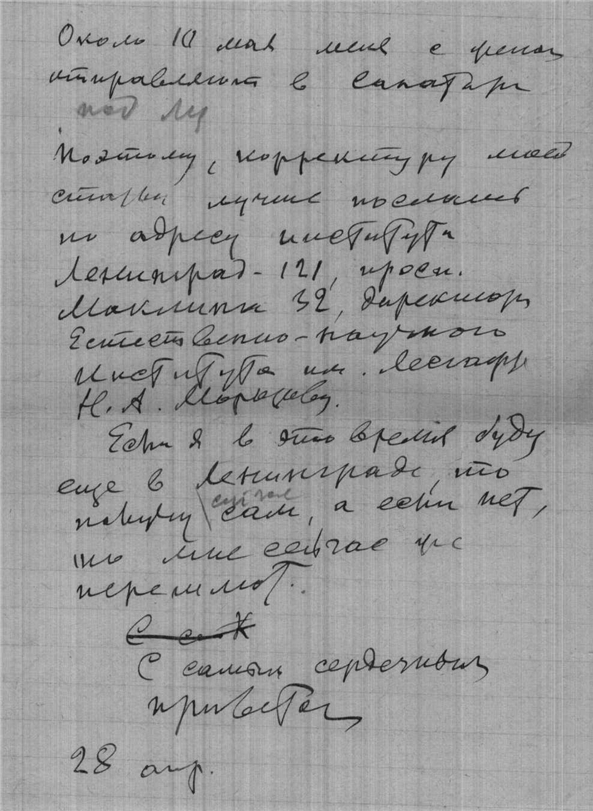 Около 10 мая меня с женой
отправляют в санаторий
под Лу
Поэтому, корректуру моей
статьи лучше послать
по адресу института
Ленинград-121, просп.
Маклина 32, директору
Естественно-научного
Института им. Лесгафта
Н. А. Морозову.
Если я в это время буду
еще в Ленинграде, то
получу сам, а если нет,
то мне сейчас же
перешлют.
С самым сердечным
приветом
28 апр.